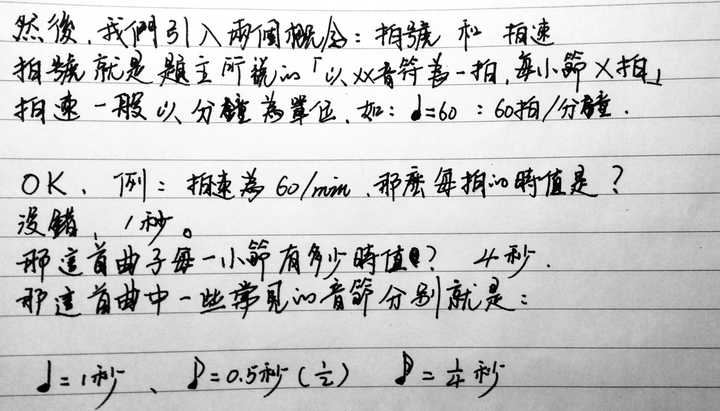 然後，我們引入兩個概念：拍號 和 拍速
拍號就是題主所説的「以XX音符為一拍，每小節X拍」
拍速一般以分鐘為單位，如：♩=60 ：60拍/分鐘．
OK、例：拍速為60/min，那麼每拍的時值是？
沒錯，1秒。
那這首曲子每一小節有多少時值？ 4秒．
那這首曲中一些常見的音節分别就是：
♩=1秒、♪=0.5秒(½) 𝅘𝅥𝅯=¼秒